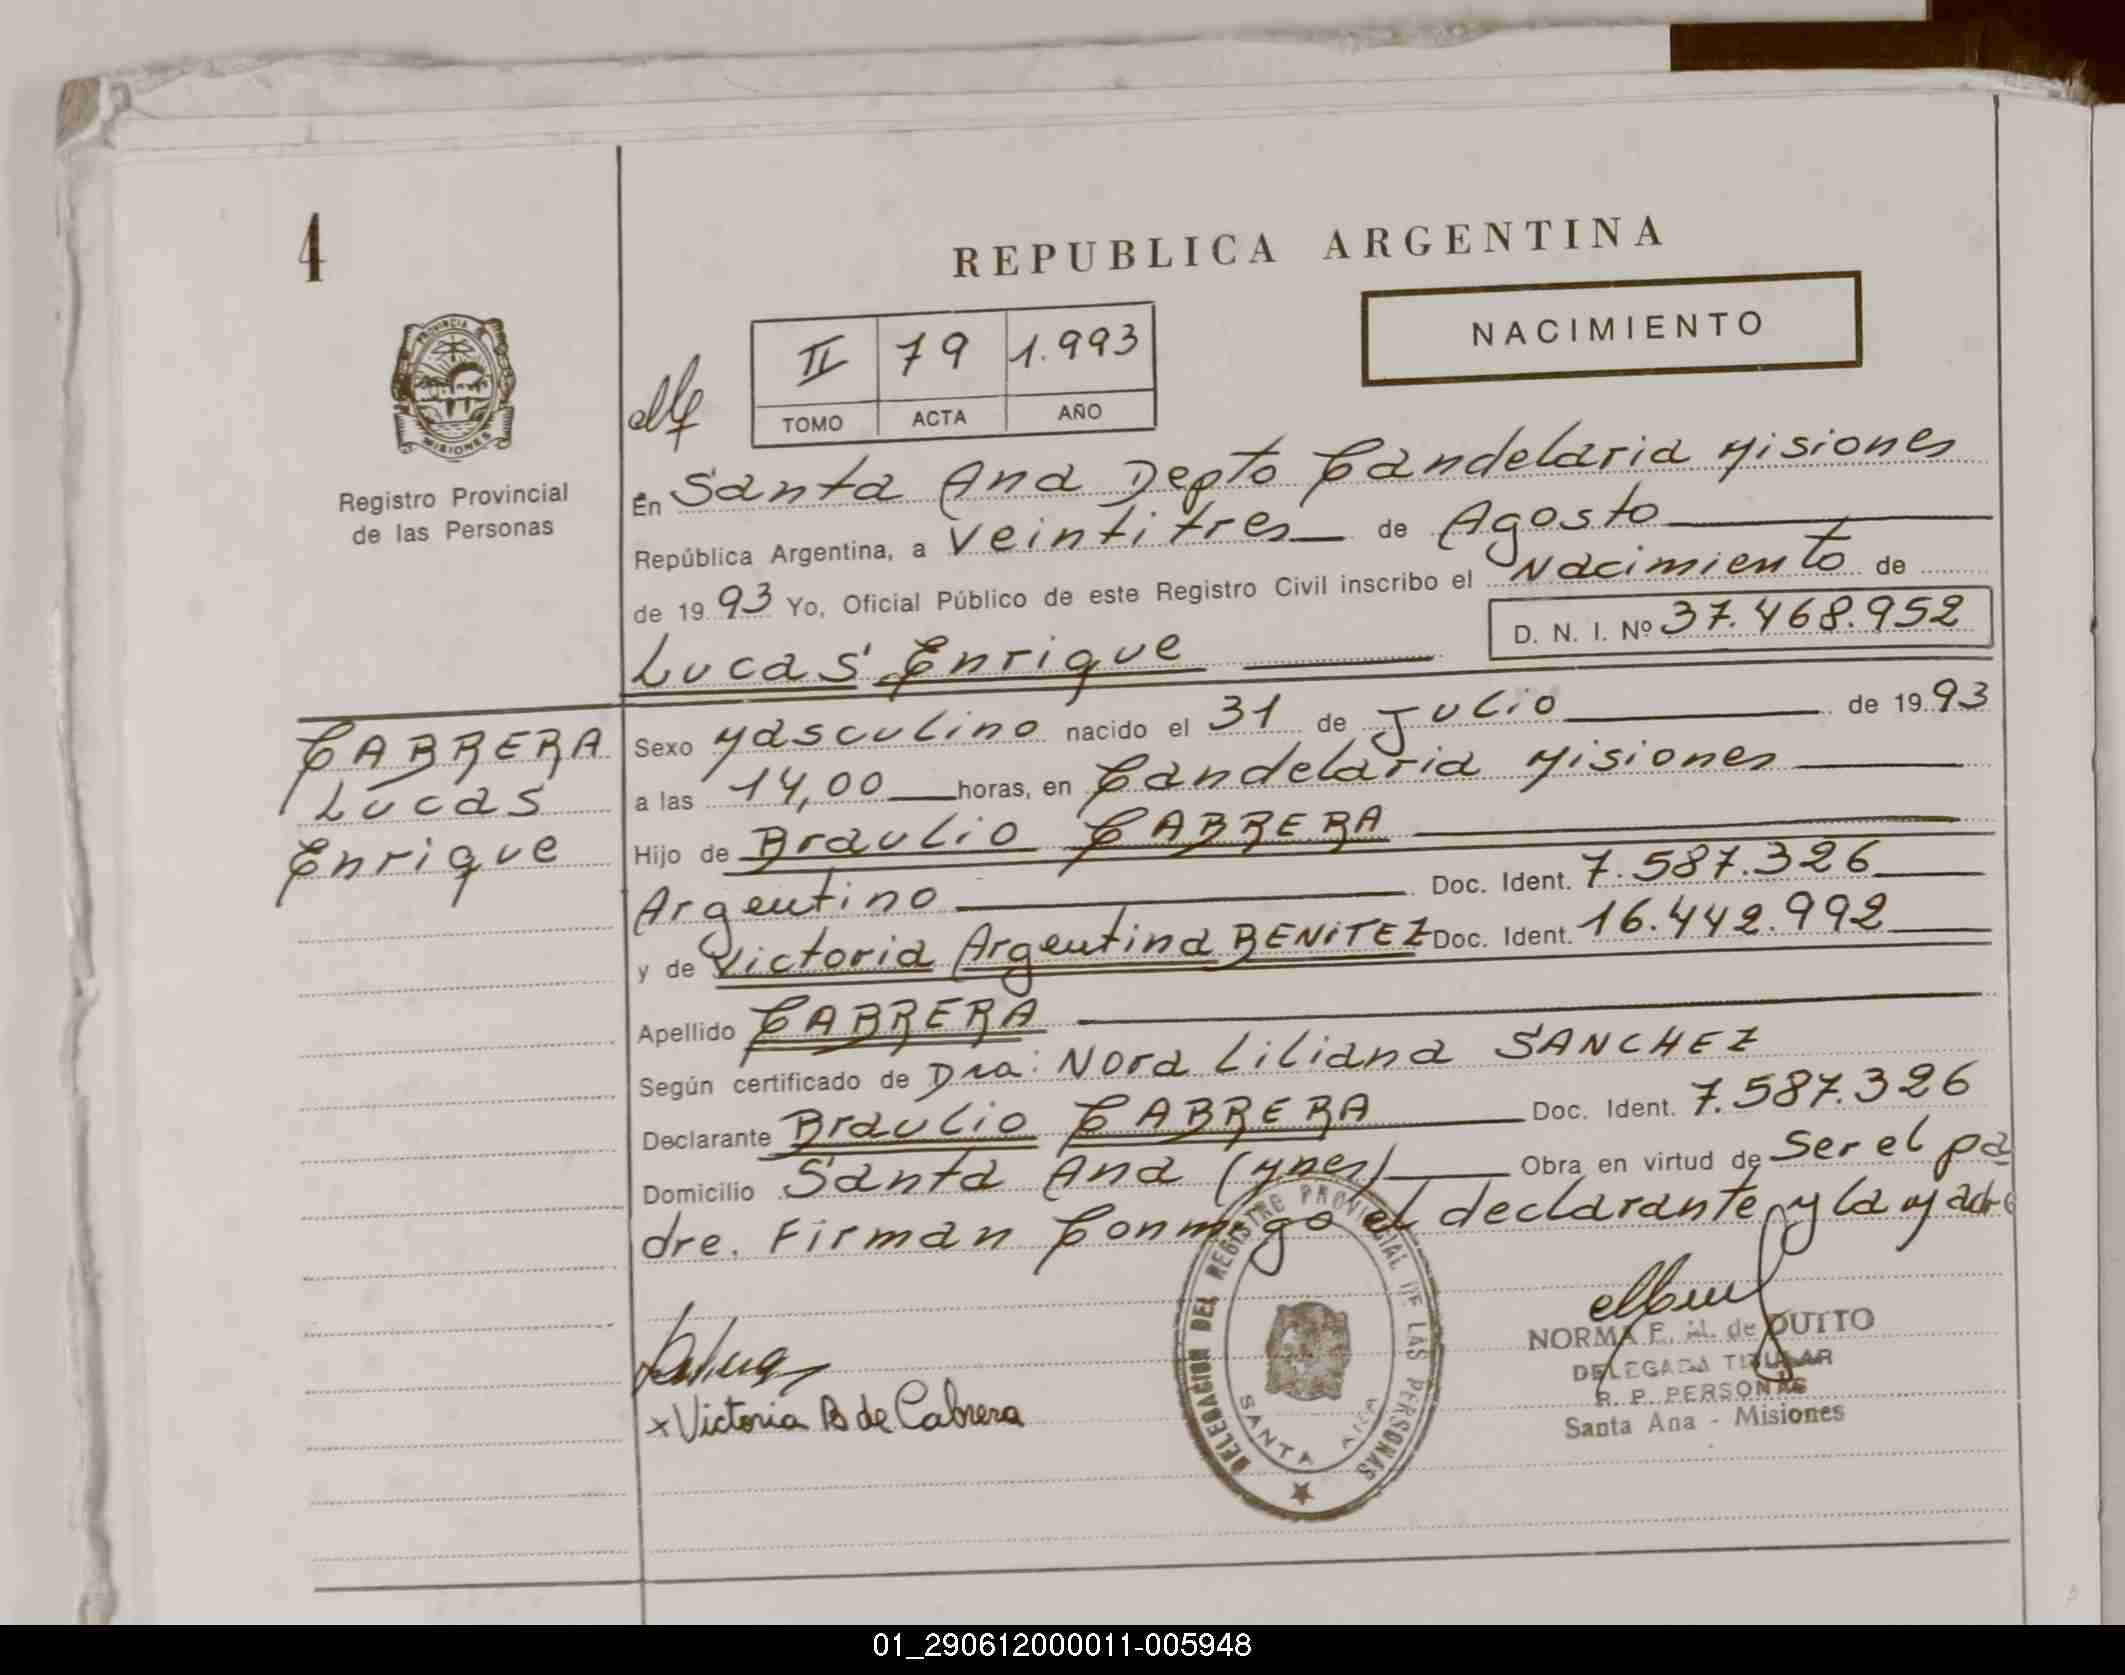 4
REPUBLICA ARGENTINA
NACIMIENTO
PROVINCIA DE
MISIONES
Registro Provincial
de las Personas
II 79 1.993
TOMO ACTA AÑO
En Santa Ana Depto Candelaria Misiones
República Argentina, a Veintitres de Agosto
de 1993 Yo, Oficial Público de este Registro Civil inscribo el Nacimiento de
D. N. I. Nº 37.468.952
Lucas Enrique
CABRERA
Lucas
Enrique
Sexo Masculino nacido el 31 de Julio de 1993
a las 14,00 horas, en Candelaria Misiones
Hijo de Braulio CABRERA
Argentino Doc. Ident. 7.587.326
y de Victoria Argentina BENITEZ Doc. Ident. 16.442.992
Apellido CABRERA
Según certificado de Dra: Nora Liliana SANCHEZ
Declarante Braulio CABRERA Doc. Ident. 7.587.326
Domicilio Santa Ana (Mnes) Obra en virtud de Ser el pa
dre. Firman Conmigo el declarante y la Madre
x Victoria B de Cabrera
DELEGACION DEL REGISTRO PROVINCIAL DE LAS PERSONAS
SANTA ANA
NORMA E. M. de DUTTO
DELEGADA TITULAR
R. P. PERSONAS
Santa Ana - Misiones
01_290612000011-005948